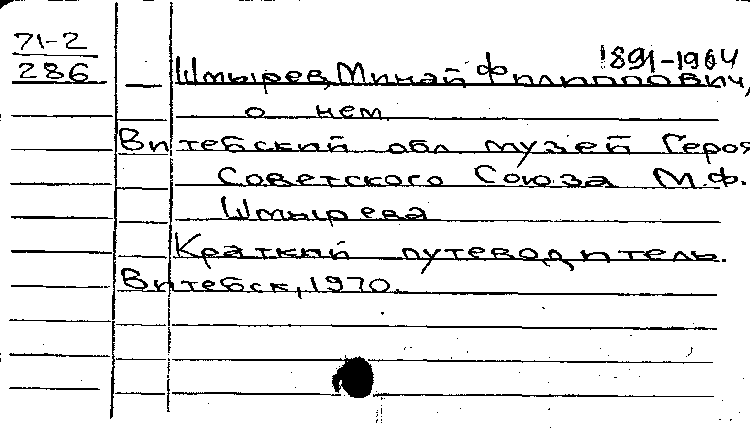 71-2
286
1891-1964
Шмырев, Минай Филиппович,
о нем
Витебский обл музей Героя
Советского Союза М.Ф.
Шмырева
Краткий путеводитель.
Витебск, 1970.